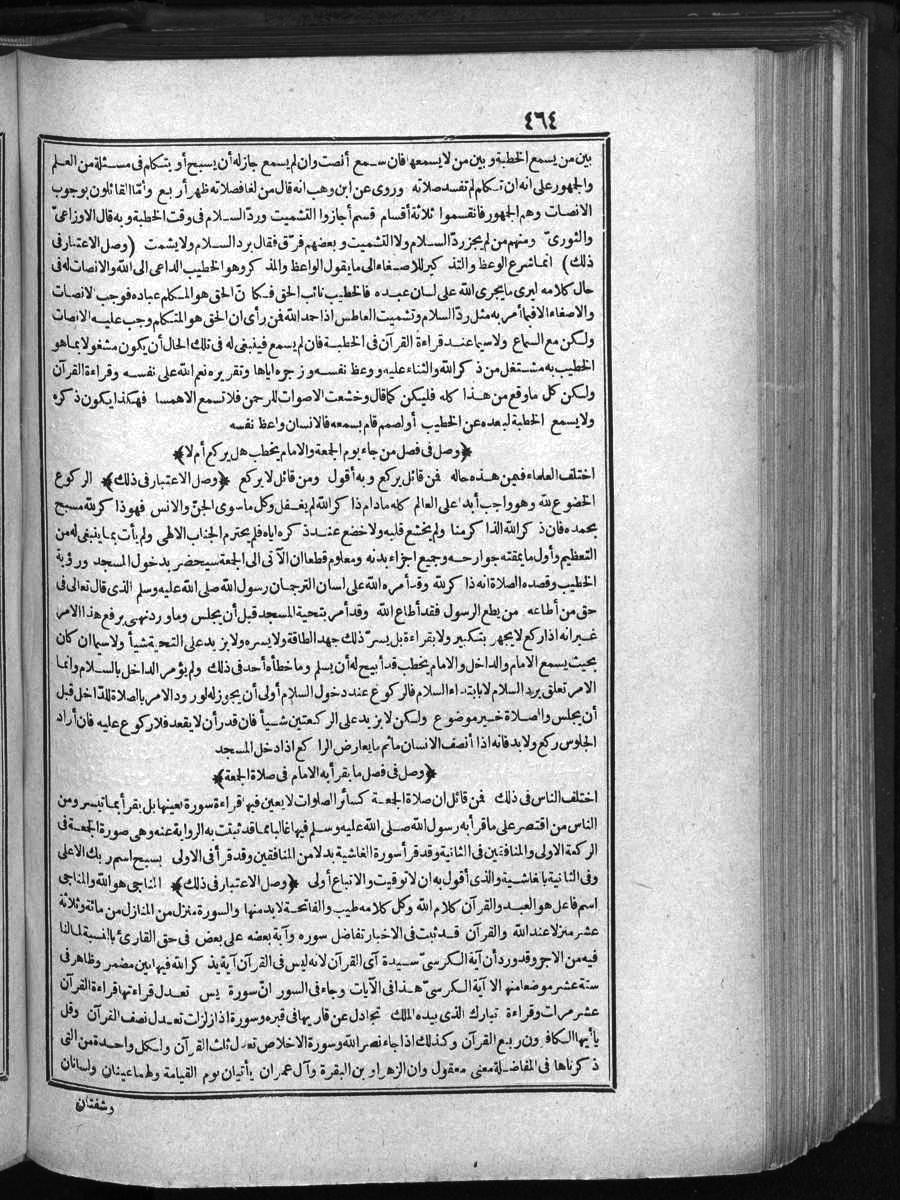 ٤٦٤
بين من يسمع الخطبة وبين من لا يسمعها فان سمع أنصت وان لم يسمع جاز له أن يسبح أو يتكلم فى مسئلة من العلم
والجمهور على انه ان تكلم لم تفسد صلاته وروى عن ابن وهب انه قال من لغا فصلاته ظهر أربع وأما القائلون بوجوب
الانصات وهم الجمهور فانقسموا ثلاثة أقسام قسم أجازوا التشميت وردّ السلام فى وقت الخطبة وبه قال الاوزاعىّ
والثورىّ ومنهم من لم يجز ردّ السلام ولا التشميت وبعضهم فرّق فقال برد السلام ولا يشمت (وصل الاعتبار فى
ذلك) انما شرع الوعظ والتذكير للاصغاء الى ما يقول الواعظ والمذكر وهو الخطيب الداعى الى الله والانصات له فى
حال كلامه ليرى ما يجرى الله على لسان عبده فالخطيب نائب الحق فكانّ الحق هو المكلم عباده فوجب لانصات
والاصغاء الا فيما أمر به مثل ردّ السلام وتشميت العاطس اذا حمد الله فمن رأى ان الحق هو المتكلم وجب عليه الانصات
ولكن مع السماع ولا سيما عند قراءة القرآن فى الخطبة فان لم يسمع فينبغى له فى تلك الحال أن يكون مشغولا بما هو
الخطيب به مشتغل من ذكر الله والثناء عليه ووعظ نفسه وزجره اياها وتقريره نعم الله على نفسه وقراءة القرآن
ولكن كل ما وقع من هذا كله فليكن كما قال وخشعت الاصوات للرحمن فلا تسمع الا همسا فهكذا يكون ذكره
ولا يسمع الخطبة لبعده عن الخطيب أو لصمم قام بسمعه فالانسان واعظ نفسه
﴿وصل فى فصل من جاء يوم الجمعة والامام يخطب هل يركع أم لا﴾
اختلف العلماء فيمن هذه حاله فمن قائل يركع وبه أقول ومن قائل لا يركع ﴿وصل الاعتبار فى ذلك﴾ الركوع
الخضوع لله وهو واجب أبدا على العالم كله مادام ذاكرا لله لم يغفل وكل ما سوى الجنّ والانس فهو ذاكر لله مسبح
بحمده فان ذكر الله الذاكر منا ولم يخشع قلبه ولا خضع عند ذكره اياه فلم يحترم الجناب الالهى ولم يأت بما ينبغى له من
التعظيم وأول ما يمقته جوارحه وجميع اجزاء بدنه ومعلوم قطعا ان الآتى الى الجمعة سيحضر بدخول المسجد ورؤية
الخطيب وقصده الصلاة انه ذاكر لله وقد أمره الله على لسان الترجمان رسول الله صلى الله عليه وسلم الذى قال تعالى فى
حق من أطاعه من يطع الرسول فقد أطاع الله وقد أمر بتحية المسجد قبل أن يجلس وما ورد نهى يرفع هذا الامر
غير انه اذا ركع لا يجهر بتكبير ولا بقراءة بل يسرّ ذلك جهد الطاقة ولا يسره ولا يزيد على التحية شيأ ولا سيما ان كان
بحيث يسمع الامام والداخل والامام يخطب قد أبيح له أن يسلم وما خطأه أحد فى ذلك ولم يؤمر الداخل بالسلام وانما
الامر تعلق برد السلام لا بابتداء السلام فالركوع عند دخول السلام أولى أن يجوز له لورود الامر بالصلاة للداخل قبل
أن يجلس والصلاة خير موضوع ولكن لا يزيد على الركعتين شيأ فان قدر أن لا يقعد فلا ركوع عليه فان أراد
الجلوس ركع ولا بد فانه اذا أنصف الانسان ما ثم ما يعارض الراكع اذا دخل المسجد
﴿وصل فى فصل ما يقرأ به الامام فى صلاة الجمعة﴾
اختلف الناس فى ذلك فمن قائل ان صلاة الجمعة كسائر الصلوات لا يعين فيها قراءة سورة بعينها بل يقرأ بما تيسر ومن
الناس من اقتصر على ما قرأ به رسول الله صلى الله عليه وسلم فيها غالبا مما قد ثبتت به الرواية عنه وهى صورة الجمعة فى
الركعة الاولى والمنافقين فى الثانية وقد قرأ سورة الغاشية بدلا من المنافقين وقد قرأ فى الاولى بسبح اسم ربك الاعلى
وفى الثانية بالغاشية والذى أقول به ان لا توقيت والاتباع أولى ﴿وصل الاعتبار فى ذلك﴾ المناجى هو الله والمناجى
اسم فاعل هو العبد والقرآن كلام الله وكل كلامه طيب والفاتحة لا بد منها والسورة منزل من المنازل من مائة وثلاثة
عشر منزلا عند الله والقرآن قد ثبت فى الاخبار تفاضل سوره وآية بعضه على بعض فى حق القارئ بالنسبة لما لنا
فيه من الاجر وقد ورد أن آية الكرسىّ سيدة آى القرآن لانه ليس فى القرآن آية يذكر الله فيها بين مضمر وظاهر فى
ستة عشر موضعا منها الا آية الكرسىّ هذا فى الآيات وجاء فى السور انّ سورة يس تعدل قراءتها قراءة القرآن
عشر مرات وقراءة تبارك الذى بيده الملك تجادل عن قاريها فى قبره وسورة اذا زلزلت تعدل نصف القرآن وقل
يا أيها الكافرون ربع القرآن وكذلك اذا جاء نصر الله وسورة الاخلاص تعدل ثلث القرآن ولكل واحدة من التى
ذكرناها فى المفاضلة معنى معقول وان الزهراوين البقرة وآل عمران يأتيان يوم القيامة ولهما عينان ولسانان
وشفتان